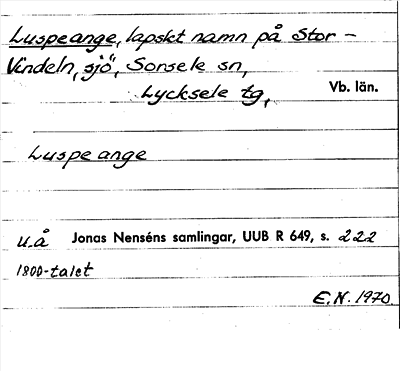 Luspeange, lapskt namn på Stor-
Vindeln, sjö, Sorsele sn,
Lycksele tg, Vb. län.
Luspeange
u.å Jonas Nenséns samlingar, UUB R 649, s. 222
1800-talet
E.N. 1970.